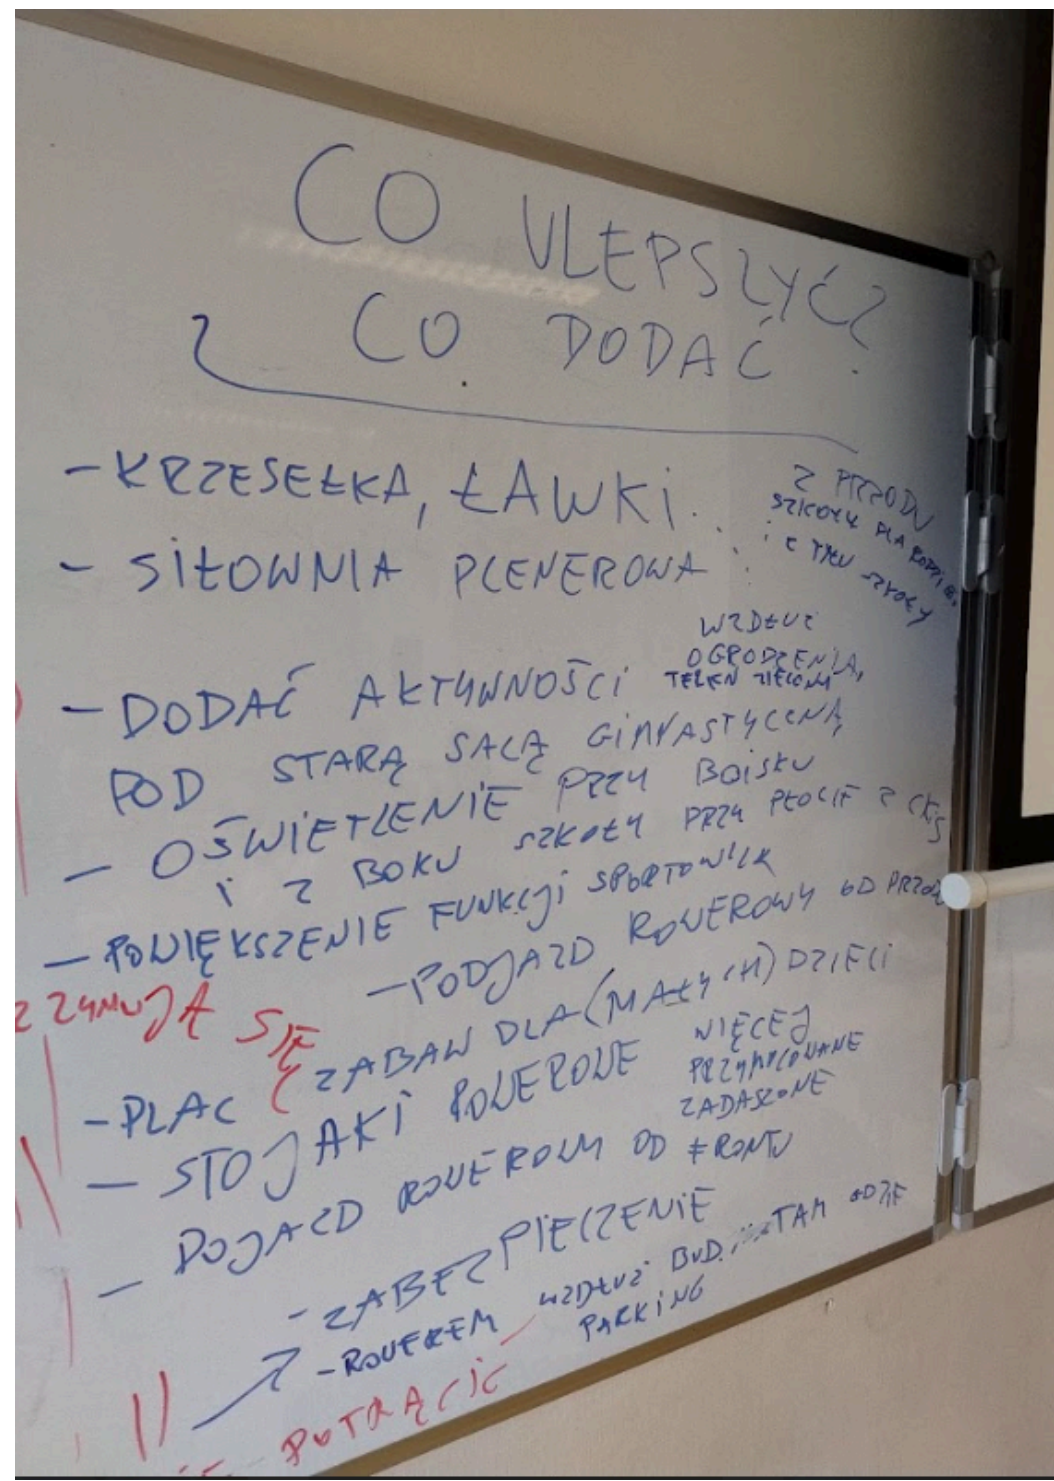 CO ULEPSZYĆ?
CO DODAĆ?
- KRZESEŁKA, ŁAWKI...
Z PRZODU
SZKOŁY DLA
I Z TYŁU SZKOŁY
- SIŁOWNIA PLENEROWA
WZDŁUŻ
OGRODZENIA,
TEREN ZIELONY
- DODAĆ AKTYWNOŚCI
POD STARĄ SALĄ GIMNASTYCZNĄ
- OŚWIETLENIE PRZY BOISKU
I Z BOKU SZKOŁY PRZY PŁOCIE Z
- POWIĘKSZENIE FUNKCJI
- PODJAZD ROWEROWY OD
SIĘ
- PLAC ZABAW DLA (MAŁYCH) DZIECI
- STOJAKI ROWEROWE WIĘCEJ
PRZYMOCOWANE
ZADASZONE
- DOJAZD ROWEROWY OD FRONTU
- ZABEZPIECZENIE
- ROWEREM WZDŁUŻ BUD. TAM GDZIE
PARKING
POTRĄCIĆ